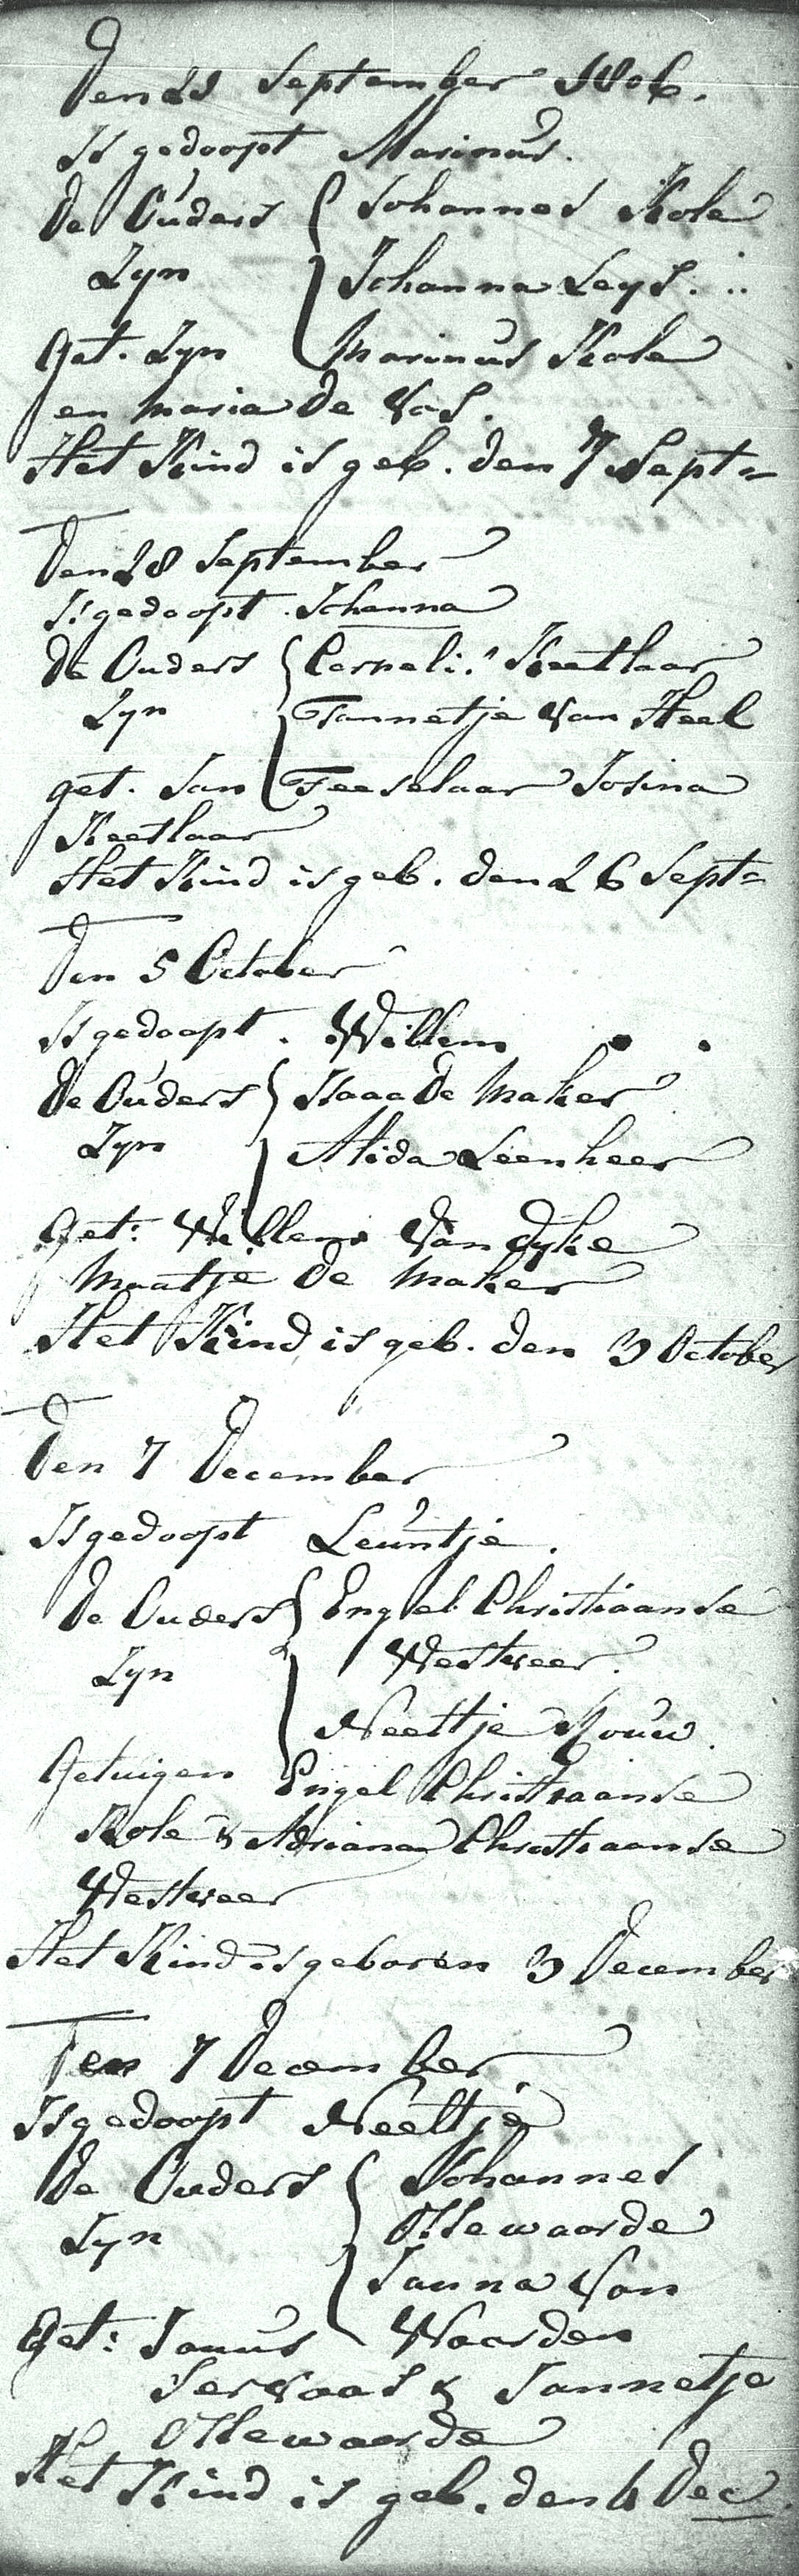 Den 21 September 1806.
Is gedoopt Marinus.
de Ouders Johannes Kole
Zyn Johanna Leys.
Get. Zyn Marinus Kole
en maria de Vos.
Het Kind is geb. den 7 Sept=
Den 28 September
Is gedoopt Johanna
de Ouders Cornelis Keetlaar
Zyn Tannetje Van Heel
get. Jan Feeselaar Josina
Keetlaar
Het Kind is geb. den 26 Sept=
Den 5 October
Is gedoopt. Willem
de Ouders Isaac De Maker
Zyn Alida Leenheer
Get: Willem Van dyke
Maatje de Maker
Het Kind is geb. den 3 October
Den 7 December
Is gedoopt Leuntje.
de Ouders Engel Christiaanse
Zyn Westveer.
Neeltje Kouw.
Getuigen Engel Christiaanse
Kole & Adriana Christiaanse
Westveer
Het Kind is geboren 3 December
Den 7 December
Is gedoopt Neeltje
de Ouders Johannes
Zyn Ollewaarde
Janna Van
Get: Janus Waarden
Servaas & Jannetje
Ollewaarde
Het Kind is geb. den 4 Dec